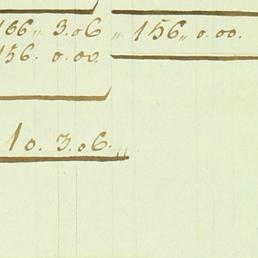 166„ 3.06 „ 156„ 0.00.
156. 0.00.
10. 3.06.„